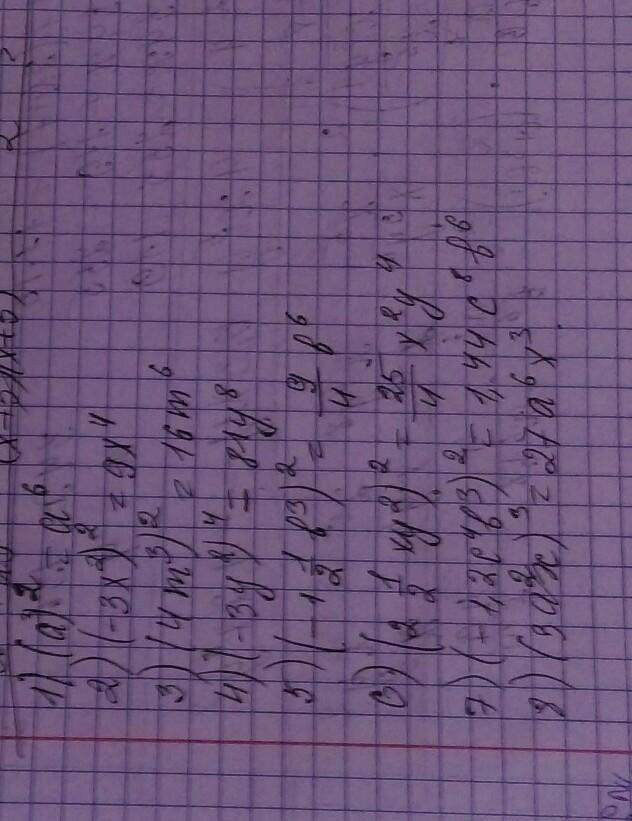 1) (a³)² = a⁶
2) (-3x²)² = 9x⁴
3) (4m³)² = 16m⁶
4) (-3y²)⁴ = 81y⁸
5) (-1 1/2 b³)² = 9/4 b⁶
6) (2 1/2 xy²)² = 25/4 x²y⁴
7) (-1,2c⁴b³)² = 1,44c⁸b⁶
8) (3a²x)³ = 27a⁶x³